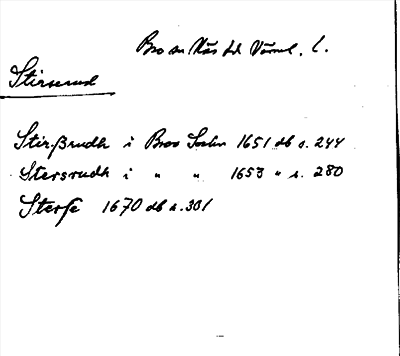 Bro sn Näs hd Värml. l.
Stirserud
Stirßrudh i Broo Sochn 1651 db s. 244
Stersrudh i " " 1653 " s. 280
Sterse 1670 db s. 301